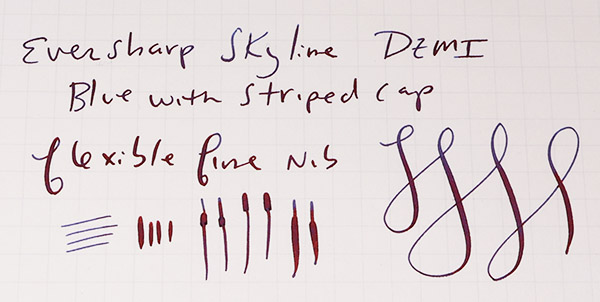 Eversharp Skyline DEMI
Blue with striped cap
flexible fine Nib